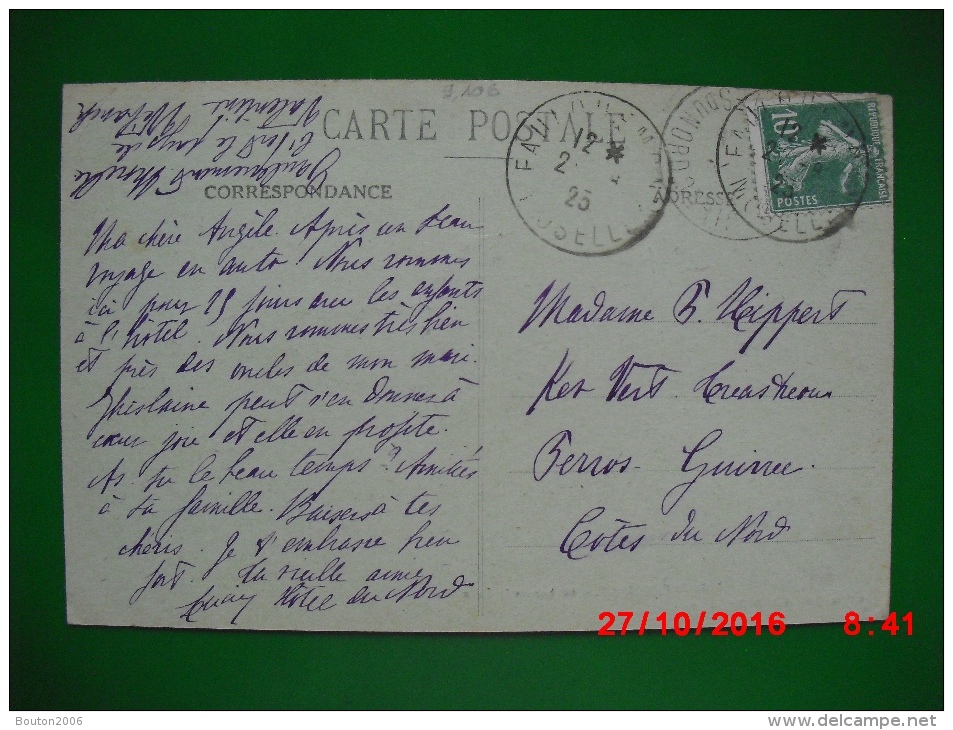 CARTE POSTALE
CORRESPONDANCE
ADRESSE
Ma chère Angèle. Après un beau
voyage en auto Nous sommes
ici pour 15 jours avec les enfants
à l'hôtel. Nous sommes très bien
et près des oncles de mon mari.
Ghislaine peut s'en donner à
cœur joie et elle en profite.
As-tu le beau temps? Amitiés
à ta famille. Baisers à tes
chéris. Je t'embrasse bien
fort. Ta vieille amie
Hôtel du Nord
12
2
25
MOSELLE
REPUBLIQUE FRANÇAISE
10
POSTES
Madame P. Hippert
Ker Vert
Perros-Guirrec
Côtes du Nord
27/10/2016 8:41
Bouton2006
www.delcampe.net